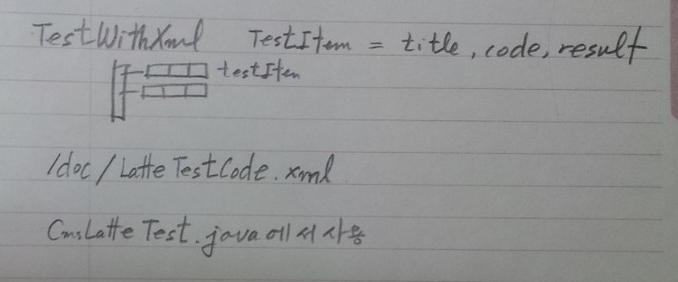 TestWithXml TestItem = title, code, result
testIten
/doc/LatteTestCode.xml
CmsLatteTest.java에서 사용